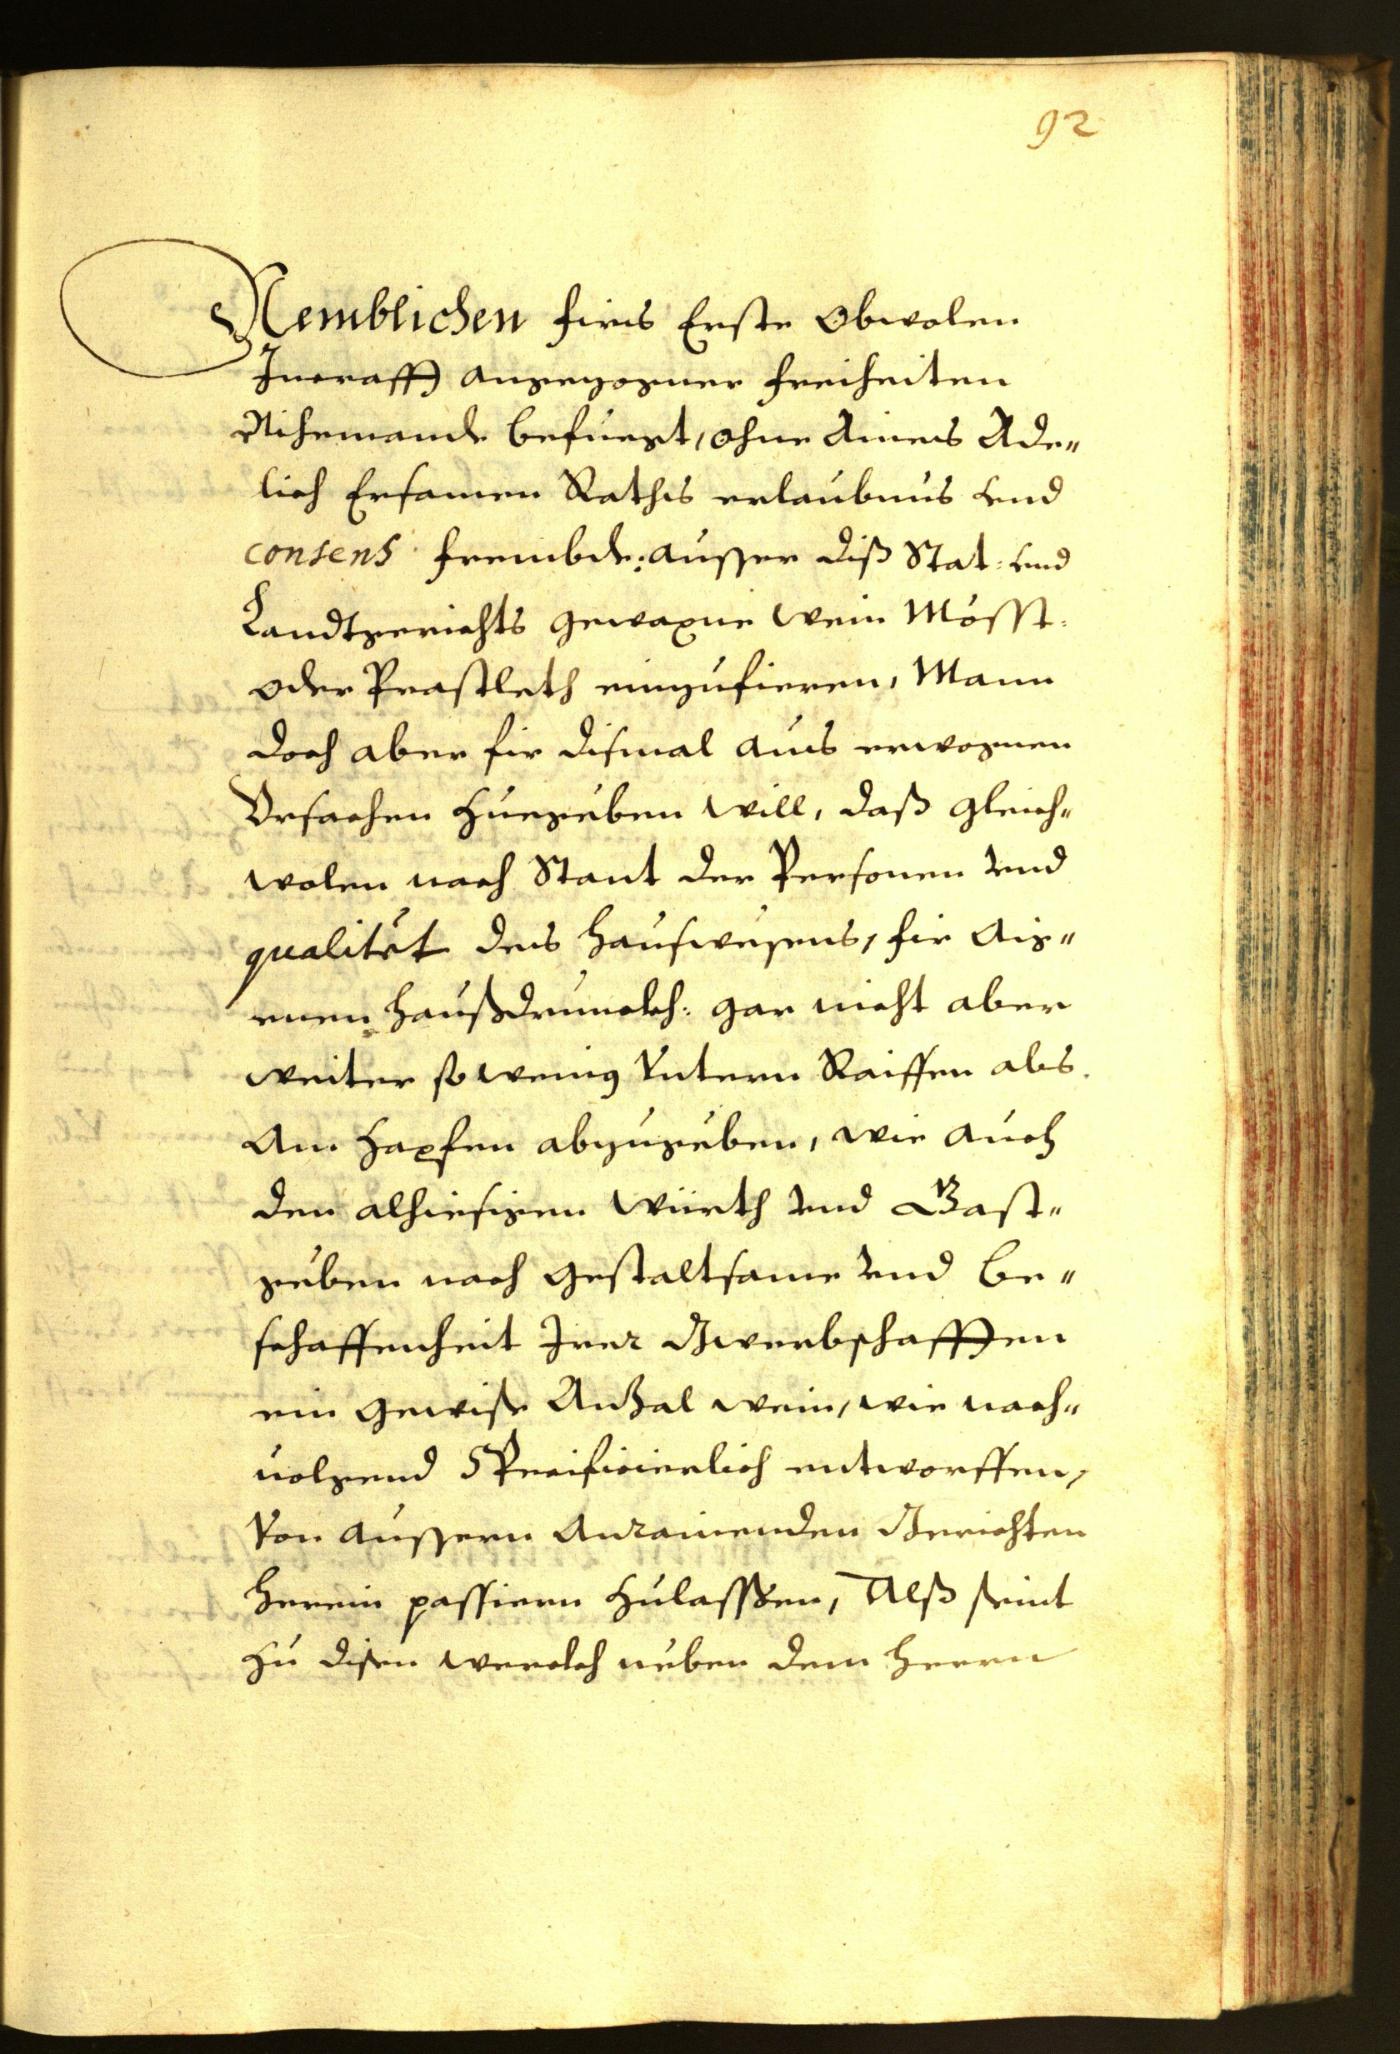 92
Nemblichen firs Erste Obwolen
Incrafft angezogner freiheiten
Nihemandt befuegt, ohne Aines Ade„
lich Ersamen Raths erlaubnus und
consens frembde: ausser diß Stat: und
Landtgerichts gewaxne Wein Mösst:
oder Prastleth einzufieren, Mann
doch aber fir dismal aus erwognen
Vrsachen Zuegeben will, daß gleich„
wolen nach Stant der Personen vnd
qualitet des Hauswesens, fir Aig„
enen Haußdrunckh: gar nicht aber
weiter so wenig Vntern Raiffen als
Am Zapfen abzugeben, wie auch
den alhiesigen Würth vnd Gast„
geben nach gestaltsame vnd be„
schaffenheit Irer Gwerbschafften
ein gewisse Anzal wein, wie nach„
uolgend Specificierlich entworffen,
Von aussern Anrainenden Gerichten
herein passiern Zulasssen, Alß seint
Zu disen werckh neben dem Herrn